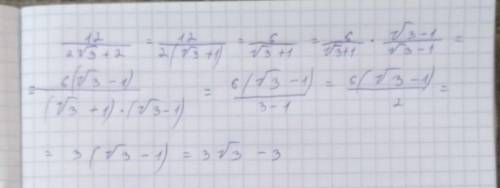 12/(2√3+2) = 12/(2(√3+1)) = 6/(√3+1) = 6/(√3+1) · (√3-1)/(√3-1) =
= 6(√3-1)/((√3+1)·(√3-1)) = 6(√3-1)/(3-1) = 6(√3-1)/2 =
= 3(√3-1) = 3√3-3